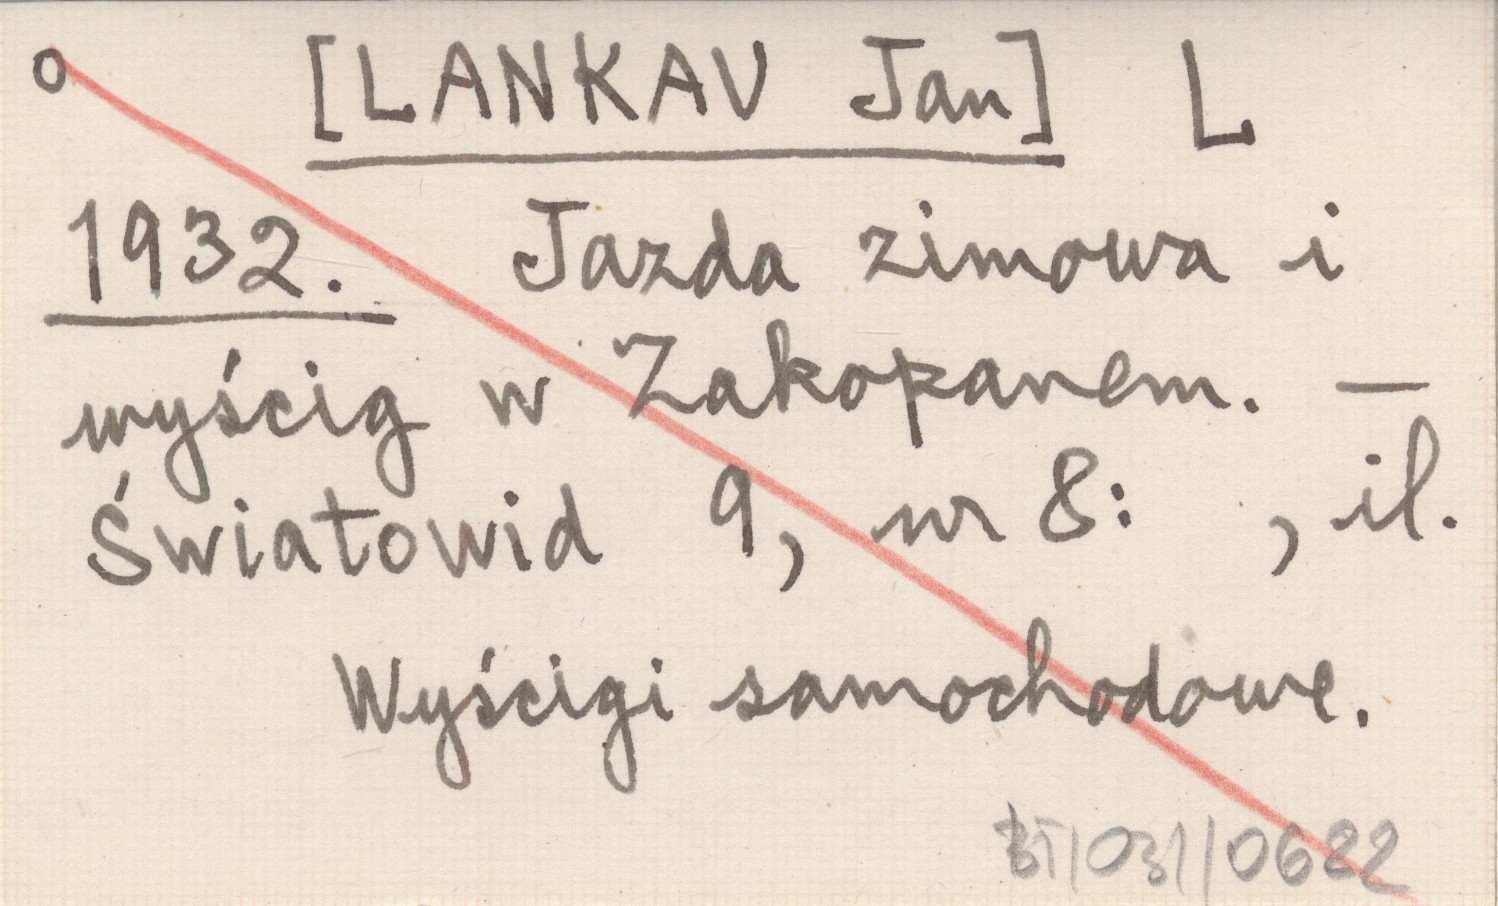 o [LANKAV Jan] L
1932. Jazda zimowa i
wyścig w Zakopanem. —
Światowid 9, nr 8: , il.
Wyścigi samochodowe.
BT/031/0622